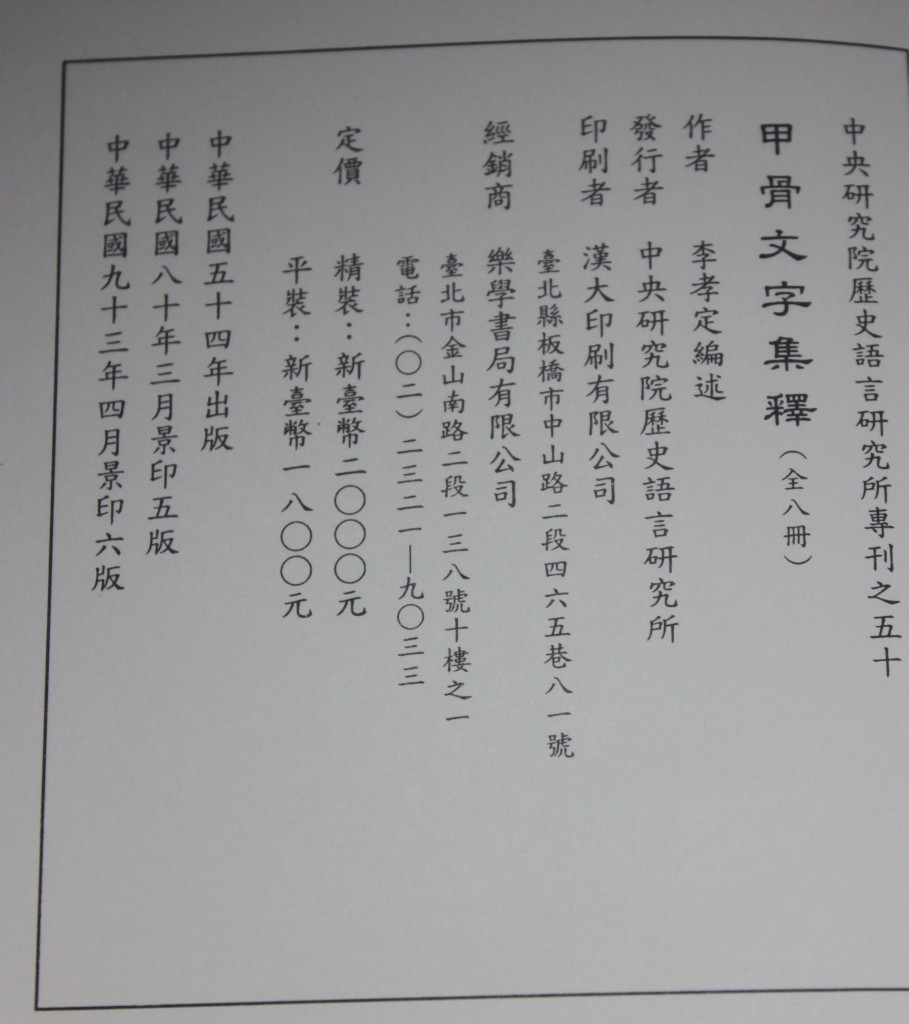 中央研究院歷史語言研究所專刊之五十
甲骨文字集釋（全八冊）
作者　李孝定編述
發行者　中央研究院歷史語言研究所
印刷者　漢大印刷有限公司
臺北縣板橋市中山路二段四六五巷八一號
經銷商　樂學書局有限公司
臺北市金山南路二段一三八號十樓之一
電話：（〇二）二三二一—九〇三三
定價　精裝：新臺幣二〇〇〇元
平裝：新臺幣一八〇〇元
中華民國五十四年出版
中華民國八十年三月景印五版
中華民國九十三年四月景印六版